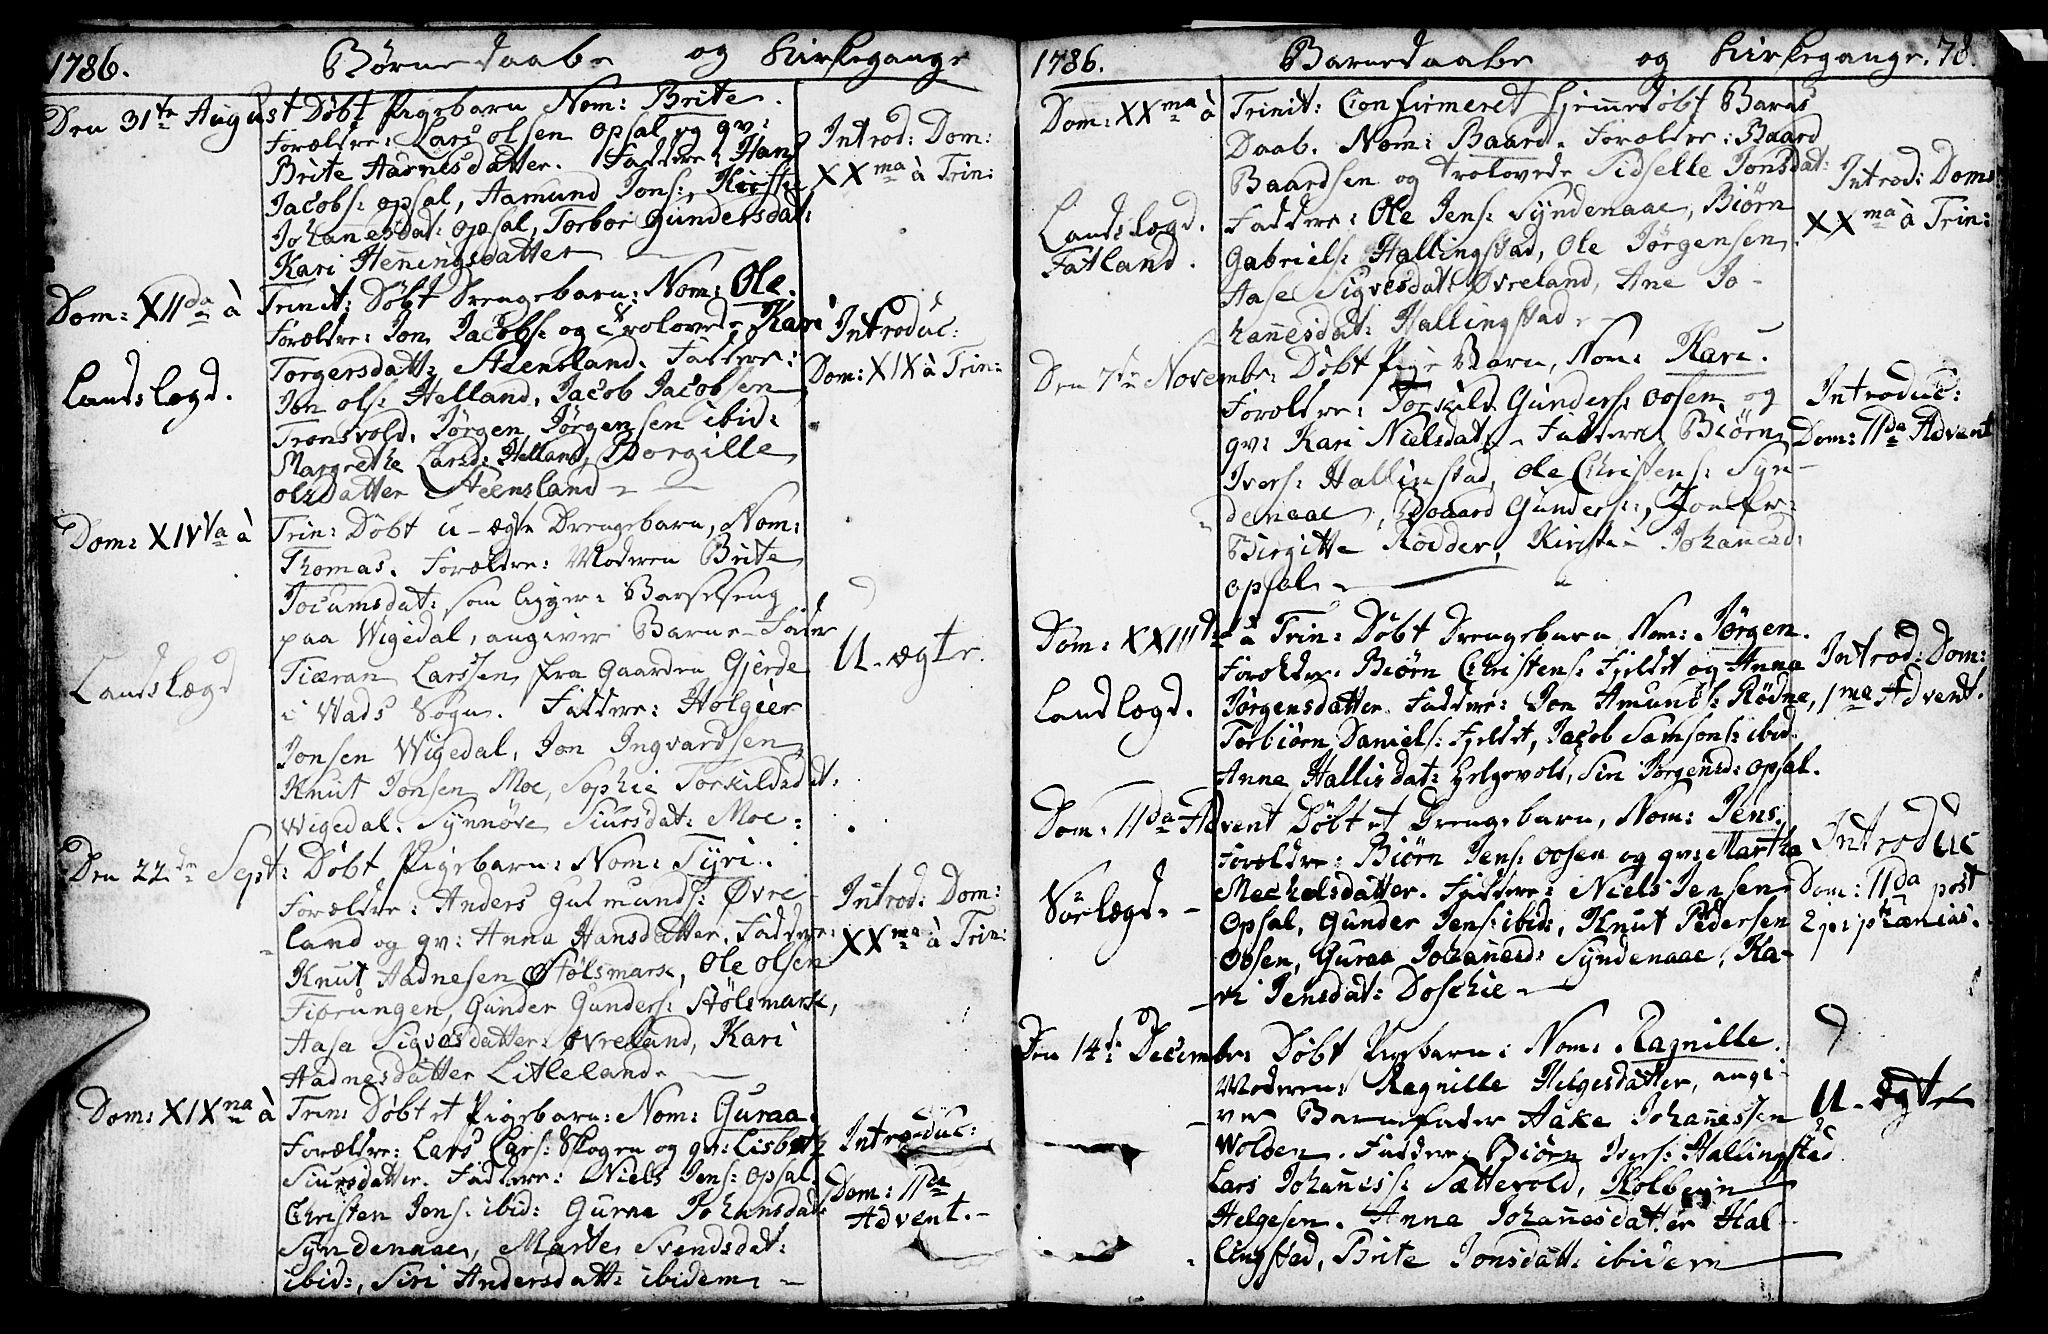 1786. Børnedaabe og Kirkegange
Den 31te August Døbt Pigebarn Nom: Brite.
Forældre: Lars olsen opsal og qv:
Brite Aadnesdatter. Faddere: Hans
Jacobs: opsal, Aamund Jons:, Kirste
Johanesdat: opsal, Torbor Gundersdat:
Kari Heningsdatter
Introd: Dom:
XXma à Trin:
Dom: XIIda à Trinit: Døbt Drengebarn: Nom: Ole.
Forældre: Jon Jacobs: og Trolovede Kari
Torgersdatt: Steensland. Faddere:
Jon ols: Helland, Jacob Jacobsen
Tronsvold, Jørgen Jørgensen ibid:
Margrethe Larsd: Helland, Borgille
olsdatter Steensland
Landslægd.
Introduc:
Dom: XIX à Trin:
Dom: XIVta à Trin: Døbt u-ægte Drengebarn, Nom:
Thomas. Forældre: Moderen Brite
Jocumsdat: som ligger i Barselseng
paa Wigedal, angiver Barne-Fader
Tiæran Larssen fra Gaarden Gjerde
i Wads Sogn. Faddere: Holgier
Jonsen Wigedal, Jon Ingvardsen
Knut Jonsen Moe, Sophie Torkildsdat:
Wigedal. Synnøve Siursdat: Moe:
Landslægd
U-ægte.
Den 22de Sept: Døbt Pigebarn: Nom: Tyri.
Forældre: Anders Gulmunds: Øvre-
land og qv: Anna Hansdatter. Faddere:
Knut Aadnesen Stølsmark, Ole olsen
Fiorungen, Gunder Gunders: Stølsmark,
Aasa Sigvasdatter Øvreland, Kari
Aadnesdatter Litleland.
Introd: Dom:
XXma à Trin:
Dom: XIXna à Trin: Døbt et Pigebarn: Nom: Guraa.
Forældre: Lars Lars: Skogen og qv: Lisbeth
Siursdatter. Faddere: Niels Jens: opsal.
Christen Jens: ibid: Guraa Johansdat:
Syndenaae, Marte Svendsdat:
ibid:, Siri Andersdatt: ibidem
Introduc:
Dom: IIda
Advent.
1786. Barnedaabe og Kirkegange. 78.
Dom: XXma à Trinit: Confirmeret Hjemmedøbt Barns
Daab. Nom: Baard. Forældre: Baard
Baardsen og trolovede Sidselle Jonsdat:
Faddere: Ole Jens: Syndenaae, Biørn
Gabriels: Hallingstad, Ole Jørgensen
Aase Sigvesdat: Øvreland, Ane Jo-
hanesdat: Hallingstad
Landslægd.
Fatland.
Introd: Dom:
XXma à Trin:
Den 7de Novembr: Døbt Pige Barn, Nom: Kari.
Forældre: Torkild Gunders: oosen og
qv: Kari Nielsdat. Faddere, Biørn
Ivers: Hallinstad, Ole Christens: Syn-
denaae, Baard Gunders:, Jomfr:
Birgitte Rødder, Kirsten Johanesd:
opsal
Introduc:
Dom: IIda Advent
Dom: XXIIItia à Trin: Døbt Drengebarn Nom: Jørgen.
Forældre. Biørn Christens: Fjeldet og Anna
Jørgensdatter. Faddere: Jon Amunds: Rødne,
Torbiørn Daniels: Fjeldet, Jacob Samsons: ibid.
Anna Hallisdat: Helgevold, Siri Jørgensd: opsal.
Landlægd.
Introd: Dom:
1ma Advent.
Dom: IIda Advent Døbt et Drengebarn, Nom: Jens.
Forældre: Biørn Jens: oosen og qv: Martha
Mechelsdatter. Faddere: Niels Jensen
Opsal, Gunder Jens: ibid:, Knut Pedersen
Oosen, Guraa Johanesd: Syndenaae, Ka-
ri Jensdat: Doschie
Sørlægd.
Introduc
Dom: IIda post
Epiphanias.
Den 14de Decembr: Døbt Pigebarn: Nom: Ragnille.
Moderen: Ragnille Helgesdatter, angi-
ver Barnefader Aake Johanessen
Wolden. Faddere: Biørn Ivers: Hallingstad
Lars Johaness: Sættevold, Kolbein
Helgesen. Anna Johanesdatter Hal-
lingstad, Brite Jonsdatt: ibidem
U-ægte